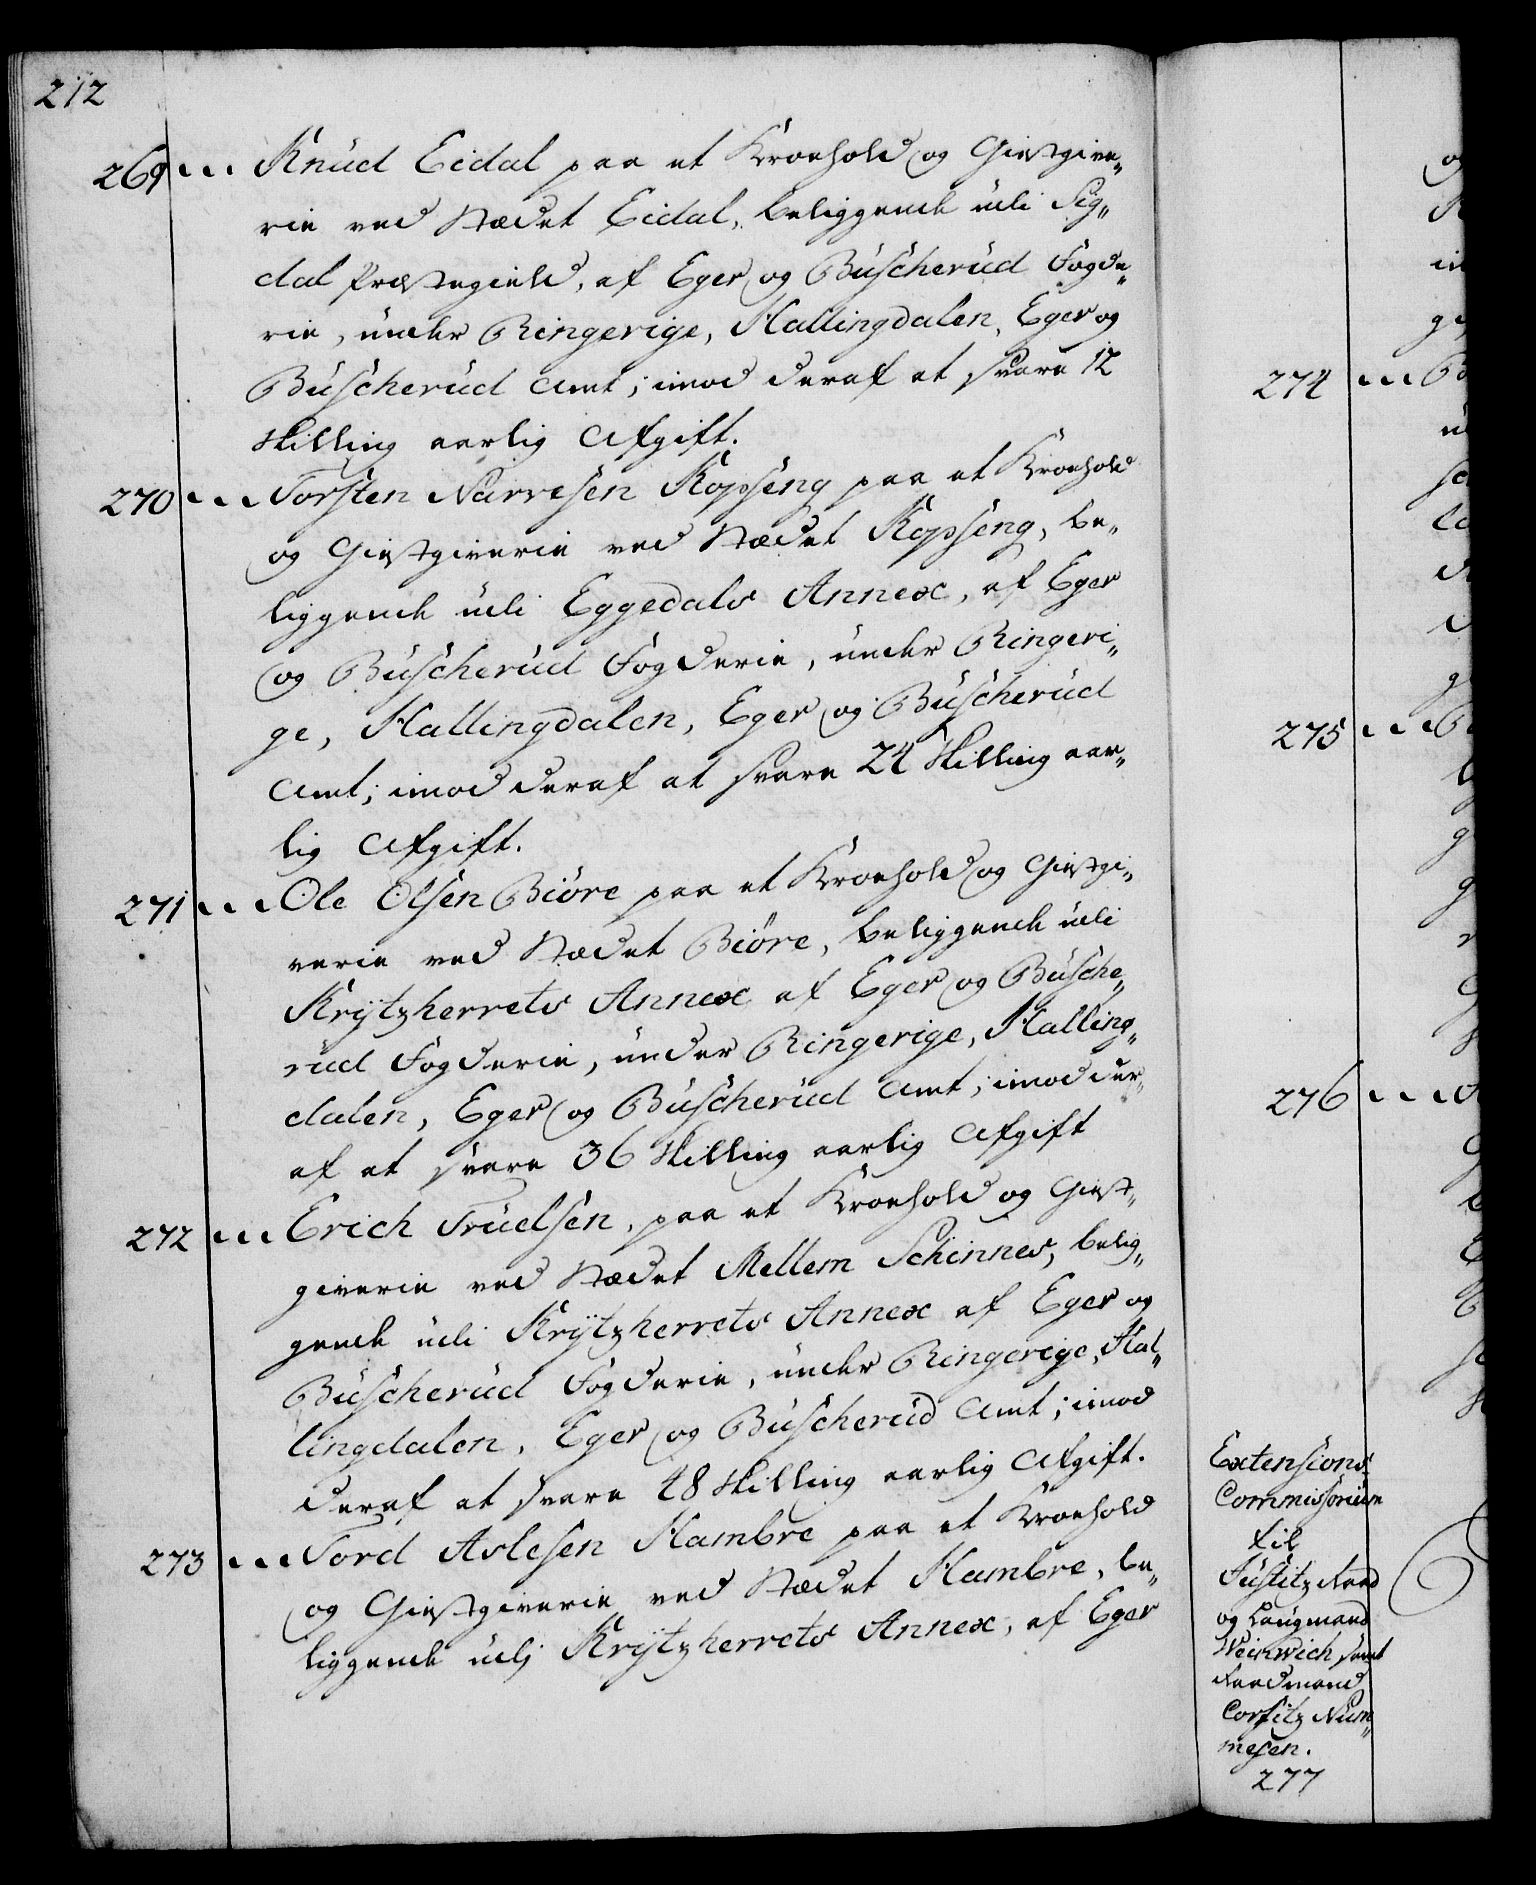 212
269 ... Knud Eidal paa et Kroehold og Giestgive„
rie ved Stædet Eidal, beliggende udi Sig„
dal Præstegield, af Eger og Buscherud Fogde„
rie, under Ringerige, Hallingdalen, Eger og
Buscherud Amt; imod deraf at svare 12
Skilling aarlig Afgift.
270 ... Torsten Narvesen Kopseng paa et Kroehold
og Giestgiverie ved Stædet Kopseng, be„
liggende udi Eggedals Annex, af Eger
og Buscherud Fogderie, under Ringeri„
ge, Hallingdalen, Eger og Buscherud
Amt; imod deraf at svare 24 Skilling aar„
lig Afgift.
271 ... Ole Olsen Biöre paa et Kroehold og Giestgi„
verie ved Stædet Biöre, beliggende udi
Krÿtzherrets Annex af Eger og Busche„
rud Fogderie, under Ringerige, Halling„
dalen, Eger og Buscherud Amt; imod der„
af at svare 36 Skilling aarlig Afgift
272 ... Erich Truelsen, paa et Kroehold og Giest„
giverie ved Stædet Mellem Schinnes, belig„
gende udi Krÿtzherrets Annex af Eger og
Buscherud Fogderie, under Ringerige, Hal„
lingdalen, Eger og Buscherud Amt; imod
deraf at svare 48 Skilling aarlig Afgift.
273 ... Tord Aslesen Hambre paa et Kroehold
og Giestgiverie ved Stædet Hambre, be„
liggende udj Krÿtzherrets Annex, af Eger
274 ...
275 ...
276 ...
Extensions
Commissorium
til
Justitz Raad
og Laugmand
Weinwich samt
Raadmand
Corfitz Num„
mesen.
277